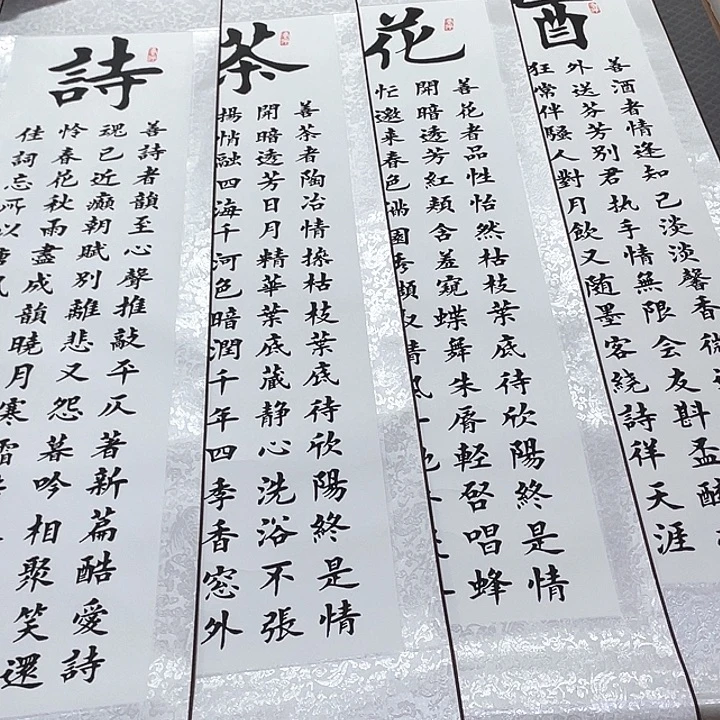 酒
善酒者情逢知己淡淡馨香微
外送芬芳別君执手情無限会友斟盃
狂常伴騷人對月飲又随墨客绕詩祥天涯
花
善花者品性怡然枯枝葉底待欣陽終是情
開暗透芳紅頰含羞窥蝶舞朱脣輕啓唱蜂
忙邀来春色满園
茶
善茶者陶冶情操枯枝葉底待欣陽終是情
開暗透芳日月精華葉底蔵静心洗浴不張
揚悄融四海千河色暗潤千年四季香窓外
詩
善詩者韻至心聲推敲平仄著新篇酷愛詩
現已近癲朝賦別離悲又怨暮吟相聚笑還
怜春花秋雨盡成韻曉月寒
佳詞忘